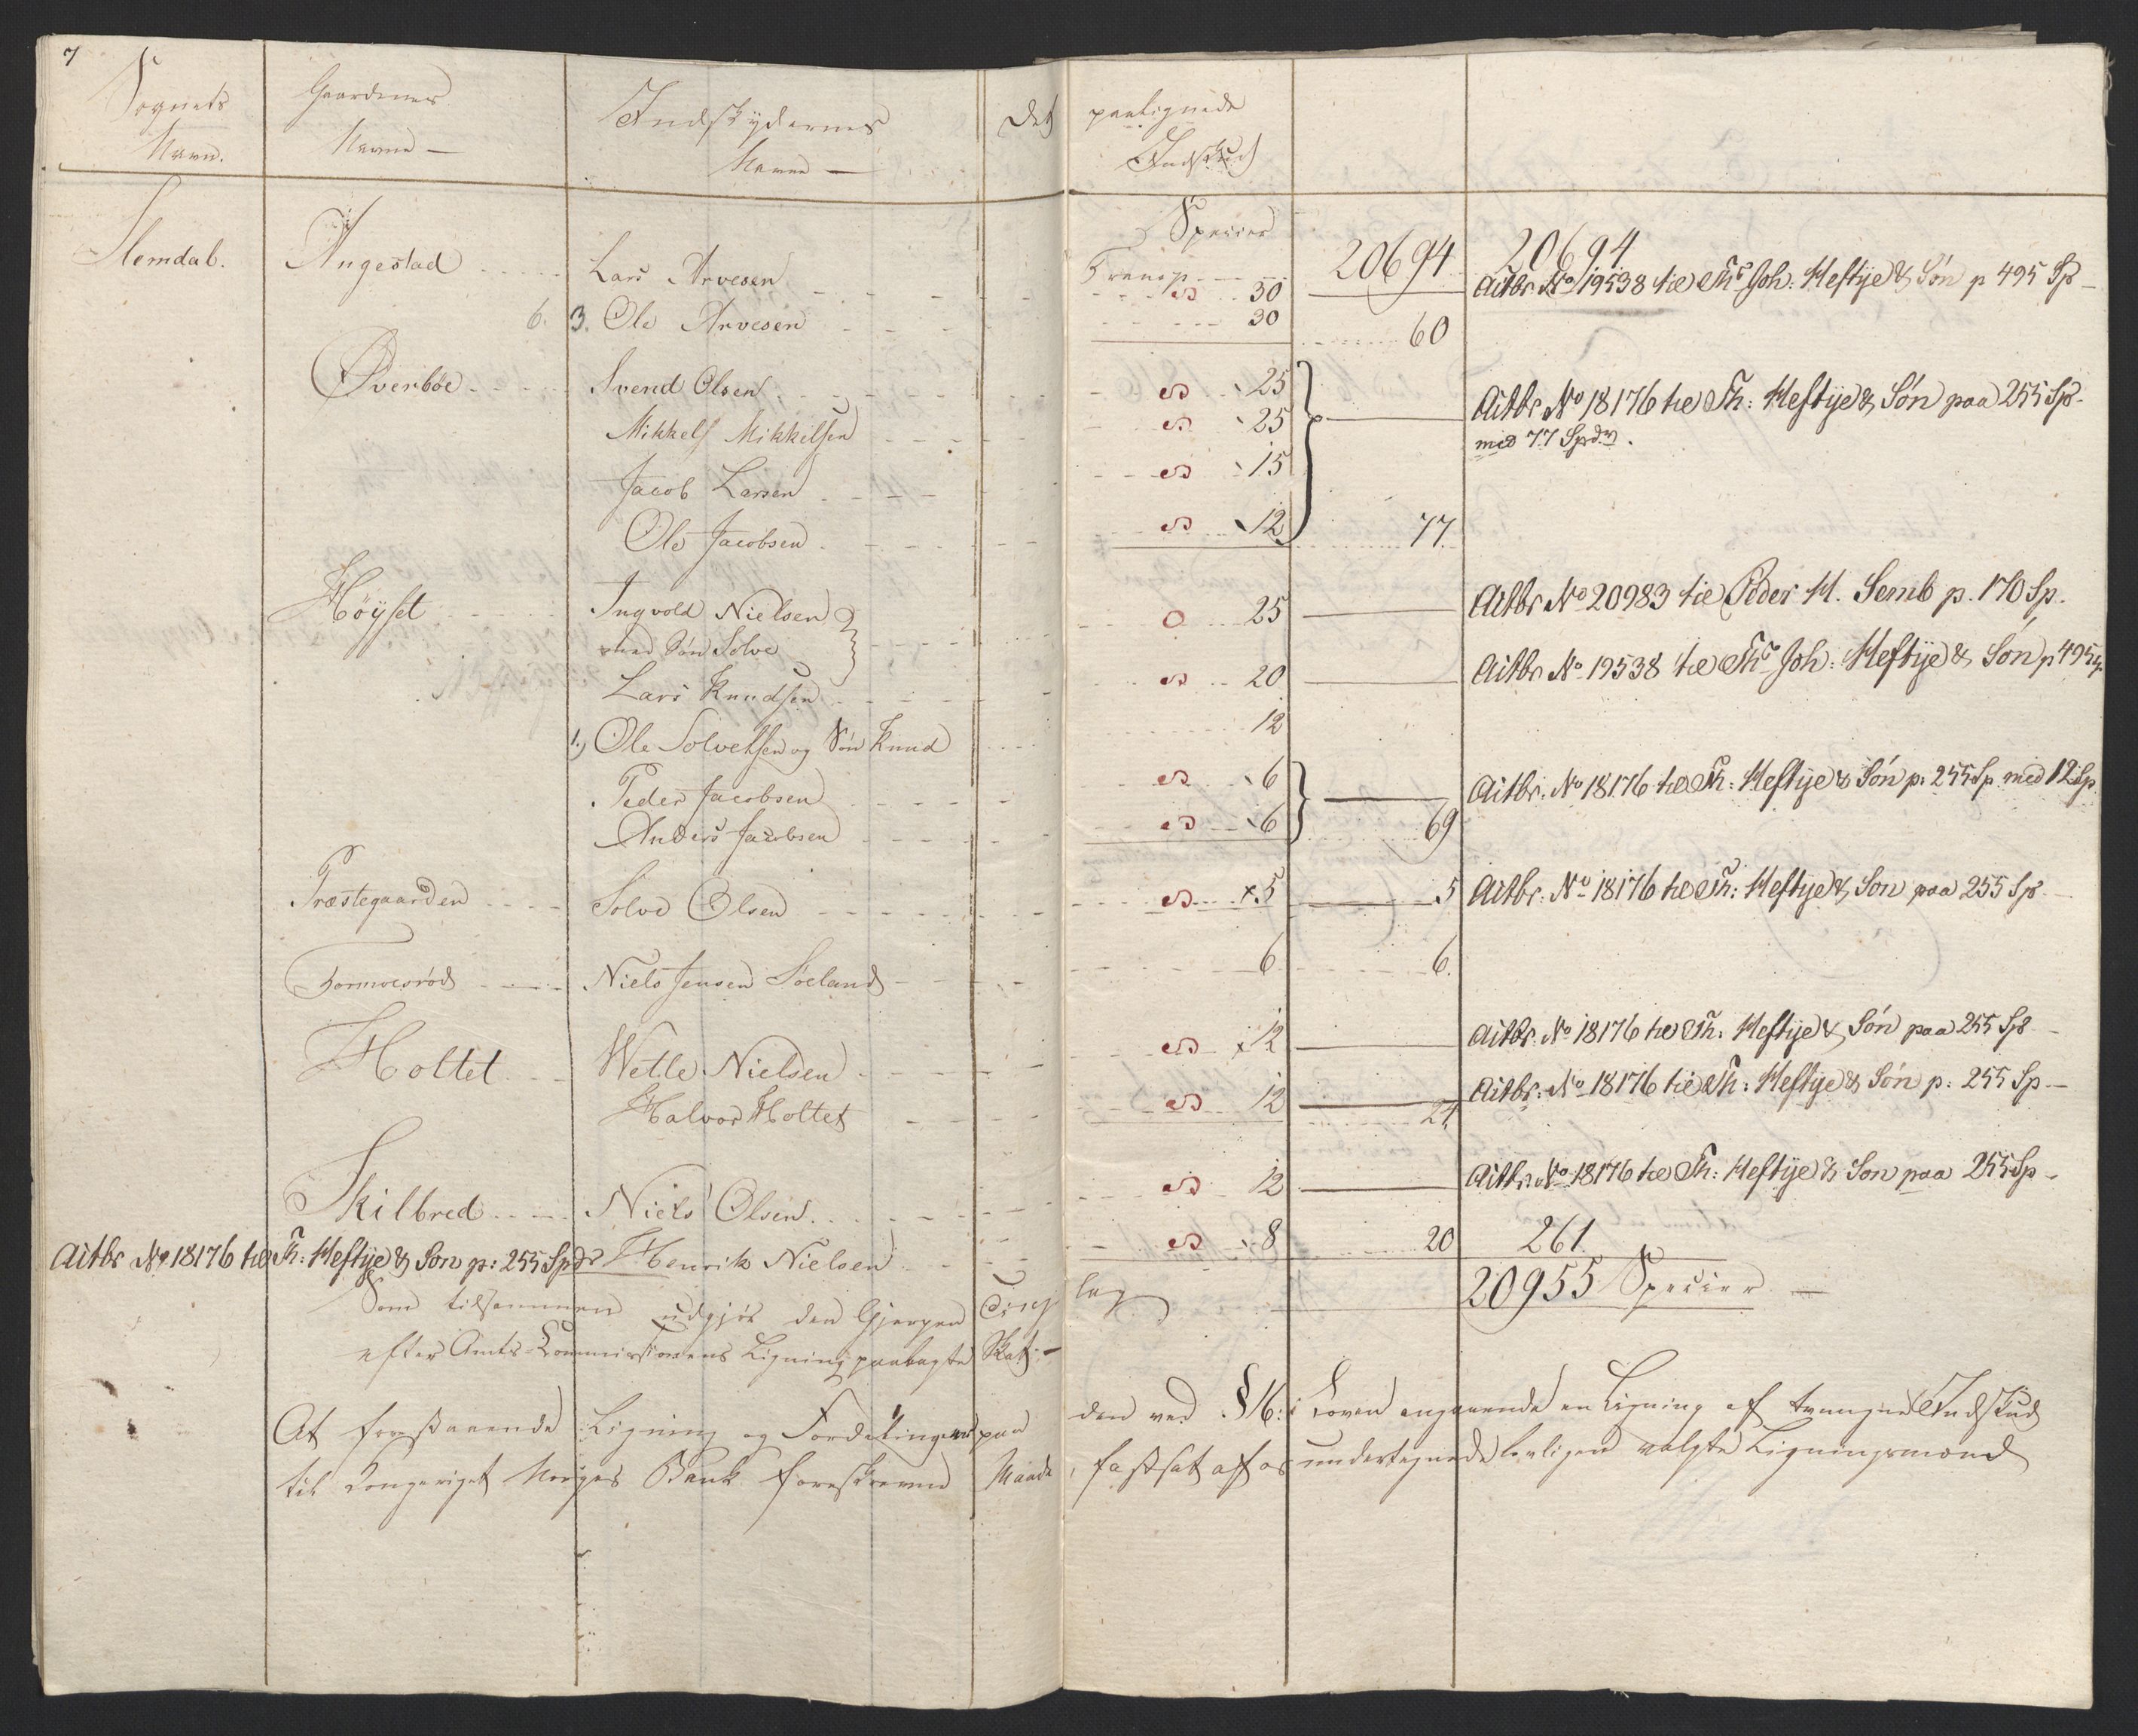 7
Sognets
Navn.
Gaardenes
Navne —
Indskydernes
Navne —
Det paalignede
Indskud
Species
Transp. 20694 20694
Slemdal. Aagestad Lars Arvesen 30 Actbr No 19538 til Ths Joh: Heftye & Søn p 495 Sp
6. 3. Ole Arvesen 30 60
Øverbøe Svend Olsen 25 Actbr No 18176 til Th: Heftye & Søn paa 255 Sp.
Mikkel Mikkelsen 25 med 77 Spd.
Jacob Larsen 15
Ole Jacobsen 12 77.
Höyset Ingvold Nielsen 25 Actbr No 20983 til Peder H. Semb p. 170 Sp.
med Søn Solve
Lars Knudsen 20 Actbr No 19538 til Ths Joh: Heftye & Søn p 495 Sp
1.) Ole Solvesen og Søn Knud 12
Peder Jacobsen 6 Actbr. No 18176 til Th: Heftye & Søn p: 255 Sp. med 12 Sp
Anders Jacobsen 6 69
Præstegaarden Solve Olsen 5 5 Actbr: No 18176 til Th: Heftye & Søn paa 255 Sp
Tormoesröd Niels Jensen Söeland 6 6.
Holtet Wetle Nielsen 12 Actbr. No 18176 til Th: Heftye & Søn paa 255 Sp
Halvor Holtet 12 24 Actbr: No 18176 til Th: Heftye & Søn p: 255 Sp
Skilbred Niels Olsen 12 Actbr. No 18176 til Th: Heftye & Søn paa 255 Sp
Actbr No 18176 til Th: Heftye & Søn p: 255 Spdr Henrik Nielsen 8 20 261
20955 Species
Som tilsammen udgjör den Gjerpen Tinglag
efter Amts-Commissionens Ligning paalagte Skat. —
At forestaaende Ligning og Fordelingen paa den ved § 16: i Loven angaaende en Ligning af tvungne Indskud
til Kongeriget Norges Bank foreskrevne Maade, fastsat af os undertegnede lovligen valgte Ligningsmænd